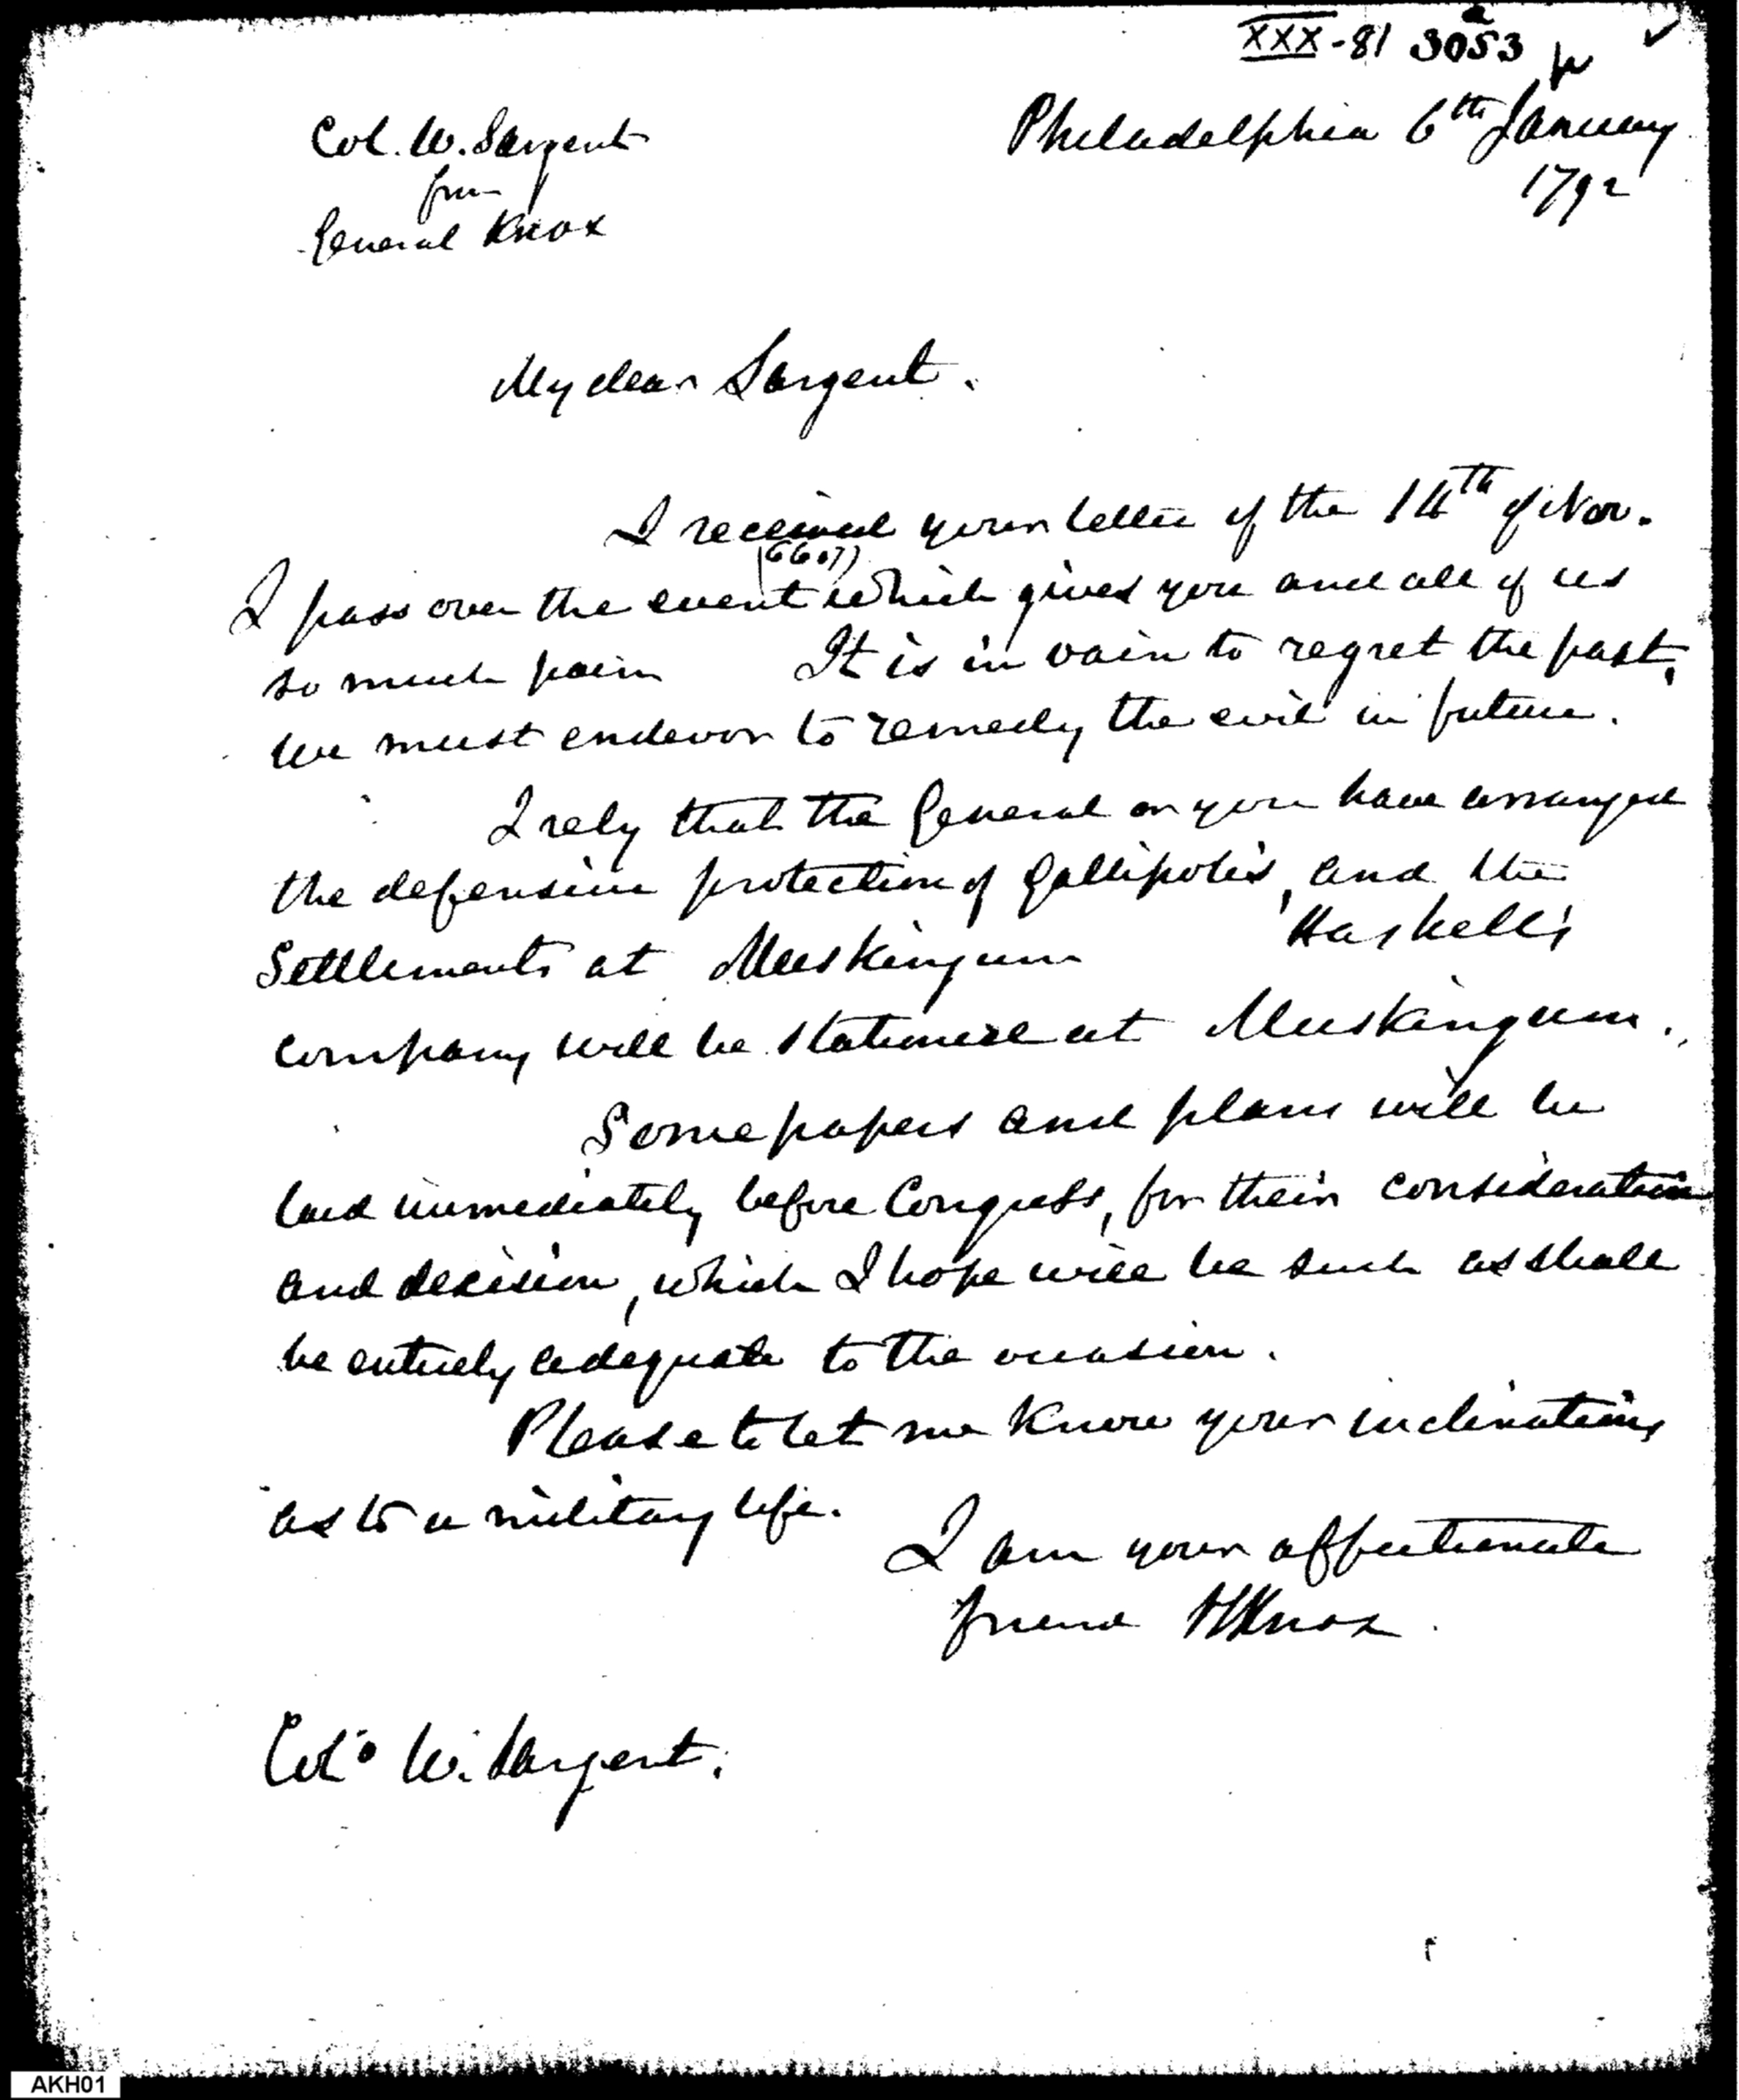 XXX-81 3053 a
Col. W. Sargent
from
General Knox
Philadelphia 6th January
1792
My dear Sargent.
I received your letter of the 14th of Nov.
I pass over the event which gives you and all of us
so much pain It is in vain to regret the past,
we must endevor to remedy the evil in future.
I rely that the General or you have arranged
the defensive protection of Gallipolis, and the
Settlements at Muskingum Haskell's
company will be stationed at Muskingum.
Some papers and plans will be
laid immediately before Congress, for their consideration
and decision, which I hope will be such as shall
be entirely adequate to the occasion.
Please to let me know your inclinations
as to a military life.
I am your affectionate
friend HKnox.
Colo W. Sargent.
AKH01